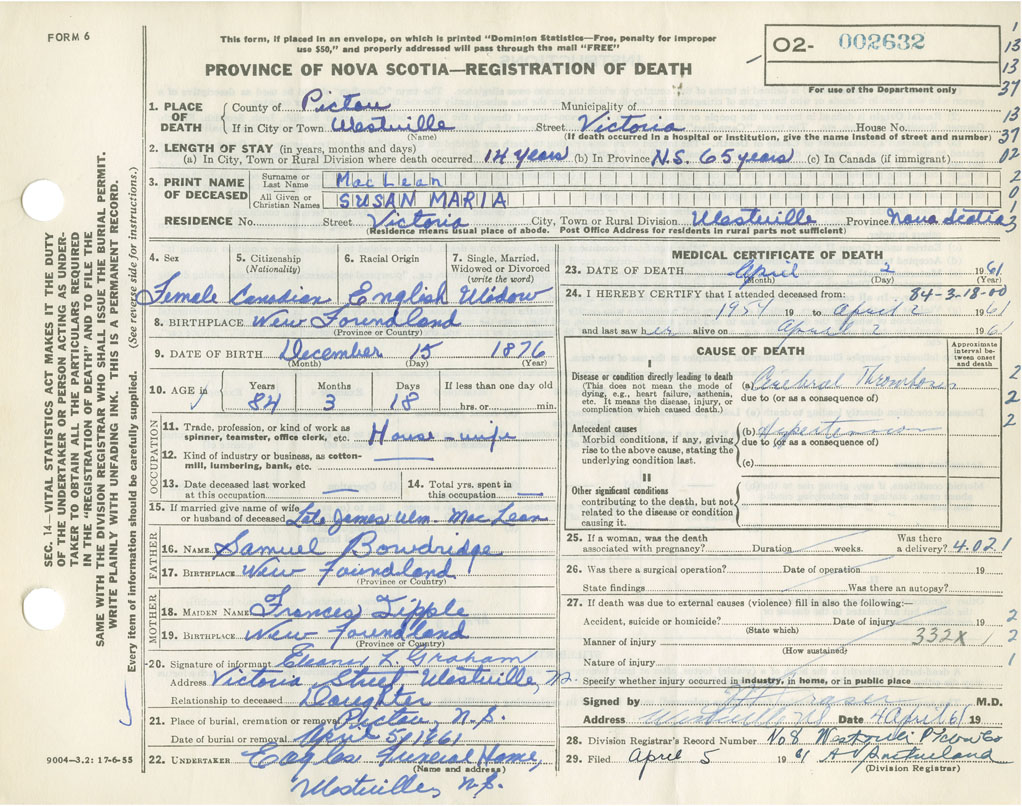 FORM 6
This form, if placed in an envelope, on which is printed "Dominion Statistics—Free, penalty for improper
use $50," and properly addressed will pass through the mail "FREE"
PROVINCE OF NOVA SCOTIA—REGISTRATION OF DEATH
02- 002632
For use of the Department only
1
13
13
37
13
37
02
2
0
1
3
SEC. 14—VITAL STATISTICS ACT MAKES IT THE DUTY
OF THE UNDERTAKER OR PERSON ACTING AS UNDER-
TAKER TO OBTAIN ALL THE PARTICULARS REQUIRED
IN THE "REGISTRATION OF DEATH" AND TO FILE THE
SAME WITH THE DIVISION REGISTRAR WHO SHALL ISSUE THE BURIAL PERMIT.
WRITE PLAINLY WITH UNFADING INK. THIS IS A PERMANENT RECORD.
Every item of information should be carefully supplied. (See reverse side for instructions.)
1. PLACE OF DEATH County of Pictou Municipality of
If in City or Town Westville Street Victoria House No.
(Name) (If death occurred in a hospital or institution, give the name instead of street and number)
2. LENGTH OF STAY (in years, months and days)
(a) In City, Town or Rural Division where death occurred 14 years (b) In Province N.S. 65 years (c) In Canada (if immigrant)
3. PRINT NAME OF DECEASED Surname or Last Name MacLean
All Given or Christian Names SUSAN MARIA
RESIDENCE No. Street Victoria City, Town or Rural Division Westville Province Nova Scotia
(Residence means usual place of abode. Post Office Address for residents in rural parts not sufficient)
4. Sex 5. Citizenship (Nationality) 6. Racial Origin 7. Single, Married, Widowed or Divorced (write the word)
Female Canadian English Widow
8. BIRTHPLACE New Foundland
(Province or Country)
9. DATE OF BIRTH December 15 1876
(Month) (Day) (Year)
10. AGE in Years Months Days If less than one day old
84 3 18 hrs. or min.
OCCUPATION
11. Trade, profession, or kind of work as
spinner, teamster, office clerk, etc. House-wife
12. Kind of industry or business, as cotton-
mill, lumbering, bank, etc.
13. Date deceased last worked
at this occupation
14. Total yrs. spent in
this occupation
15. If married give name of wife
or husband of deceased Late James Wm. MacLean
FATHER
16. NAME Samuel Bowdridge
17. BIRTHPLACE New Foundland
(Province or Country)
MOTHER
18. MAIDEN NAME Frances Tipple
19. BIRTHPLACE New Foundland
(Province or Country)
20. Signature of informant Eleanor L. Graham
Address Victoria Street Westville, N.S.
Relationship to deceased Daughter
21. Place of burial, cremation or removal Pictou, N.S.
Date of burial or removal April 5, 1961
22. UNDERTAKER Eagles Funeral Home,
(Name and address)
Westville, N.S.
9004—3.2: 17-6-55
MEDICAL CERTIFICATE OF DEATH
23. DATE OF DEATH April 2 1961
(Month) (Day) (Year)
84-3-18-00
24. I HEREBY CERTIFY that I attended deceased from:
19 to April 2 1961
and last saw her alive on April 2 196
CAUSE OF DEATH
Approximate interval be-tween onset and death
I
Disease or condition directly leading to death
(This does not mean the mode of
dying, e.g., heart failure, asthenia,
etc. It means the disease, injury, or
complication which caused death.)
(a) Cerebral Thrombosis
due to (or as a consequence of)
2
2
2
Antecedent causes
Morbid conditions, if any, giving
rise to the above cause, stating the
underlying condition last.
(b) Hypertension
due to (or as a consequence of)
(c)
II
Other significant conditions
contributing to the death, but not
related to the disease or condition
causing it.
25. If a woman, was the death
associated with pregnancy? Duration weeks. Was there
a delivery? 4.021
26. Was there a surgical operation? Date of operation 19
State findings Was there an autopsy?
27. If death was due to external causes (violence) fill in also the following:—
Accident, suicide or homicide? Date of injury 19 2
(State which)
Manner of injury 332X 1 2
(How sustained)
Nature of injury 1
Specify whether injury occurred in industry, in home, or in public place
Signed by Fraser M.D.
Address Westville N.S. Date 4 April 61 19
28. Division Registrar's Record Number No 8 Westville Pictou Co
29. Filed April 5 1961
(Division Registrar)